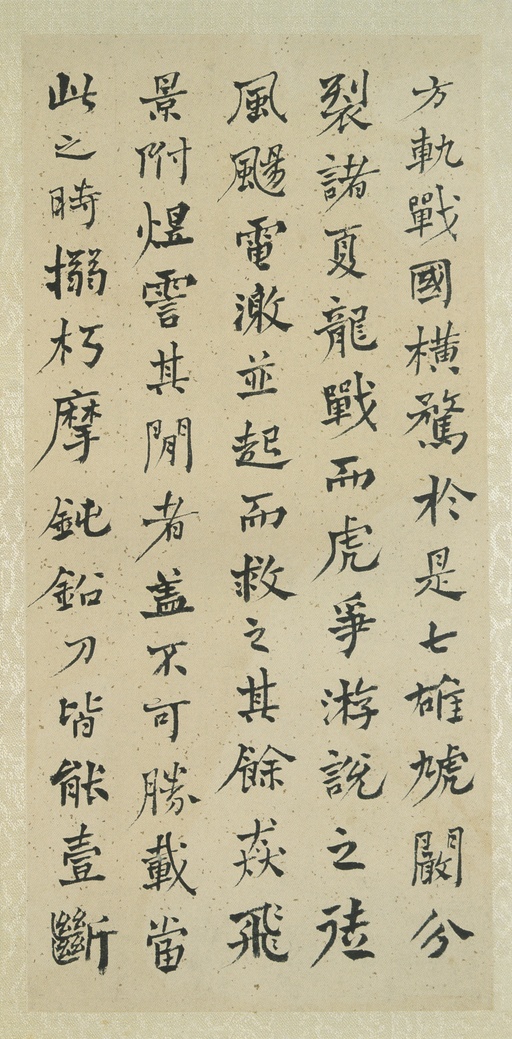 方軌戰國橫騖於是七雄虓闞分
裂諸夏龍戰而虎爭游說之徒
風颺電激並起而救之其餘猋飛
景附煜霅其閒者蓋不可勝載當
此之時搦朽摩鈍鉛刀皆能壹斷